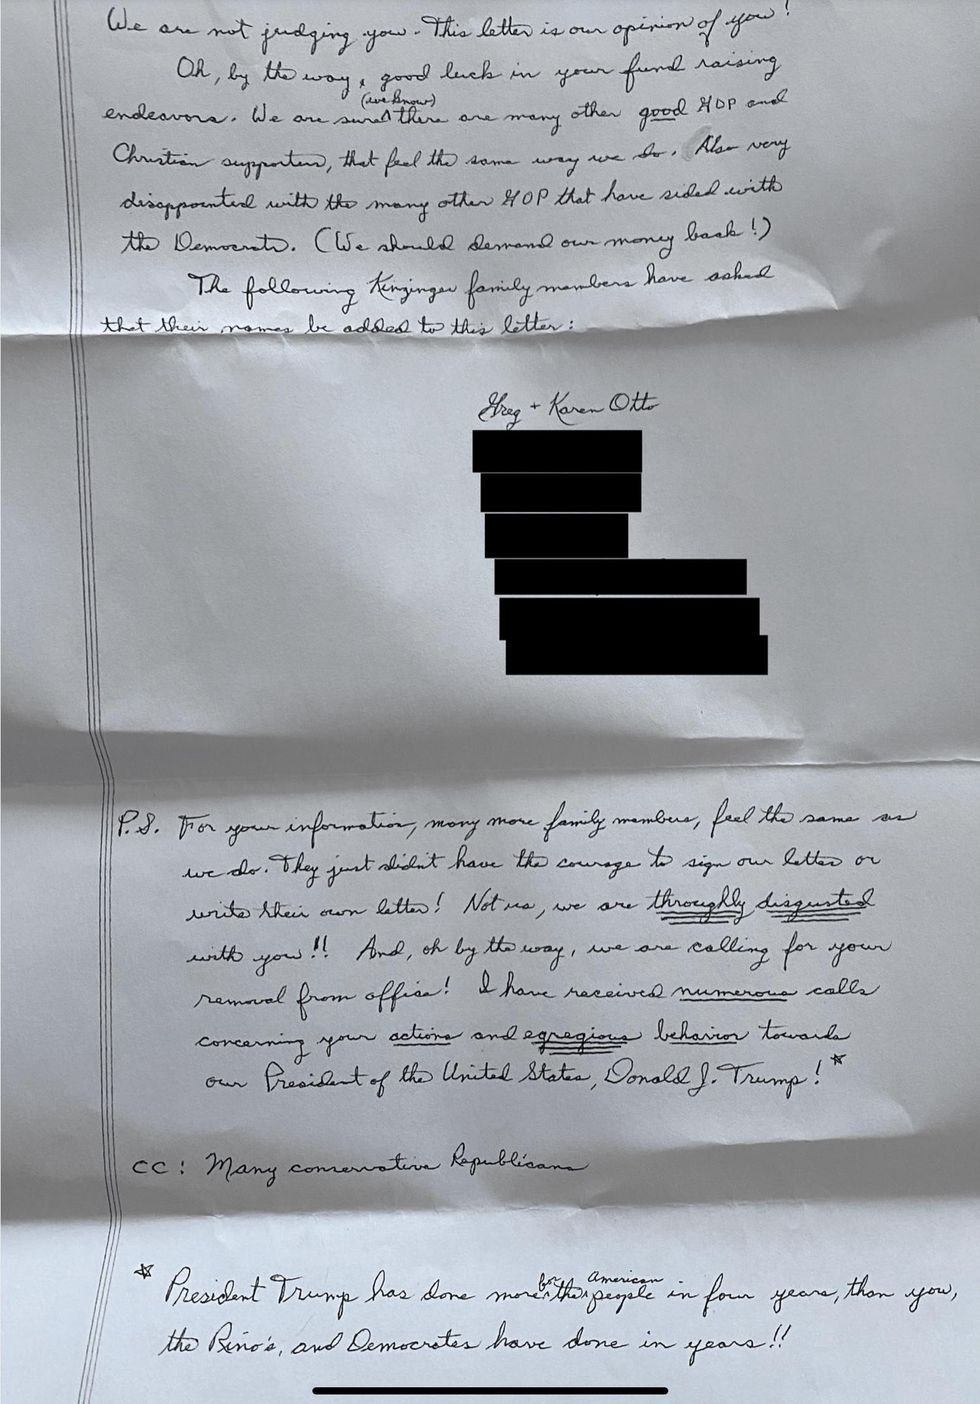 We are not judging you. This letter is our opinion of you!
Oh, by the way, good luck in your fund raising
(we know)
endeavors. We are sure^ there are many other good GOP and
Christian supporters, that feel the same way we do. Also very
disappointed with the many other GOP that have sided with
the Democrats. (We should demand our money back!)
The following Kinzinger family members have asked
that their names be added to this letter:
Greg + Karen Otto
P.S. For your information, many more family members, feel the same as
we do. They just didn't have the courage to sign our letter or
write their own letter! Not us, we are throughly disgusted
with you!! And, oh by the way, we are calling for your
removal from office! I have received numerous calls
concerning your actions and egregious behavior towards
our President of the United States, Donald J. Trump!*
CC: Many conservative Republicans
* President Trump has done more ^for the ^American people in four years, than you,
the Rino's, and Democrates have done in years!!